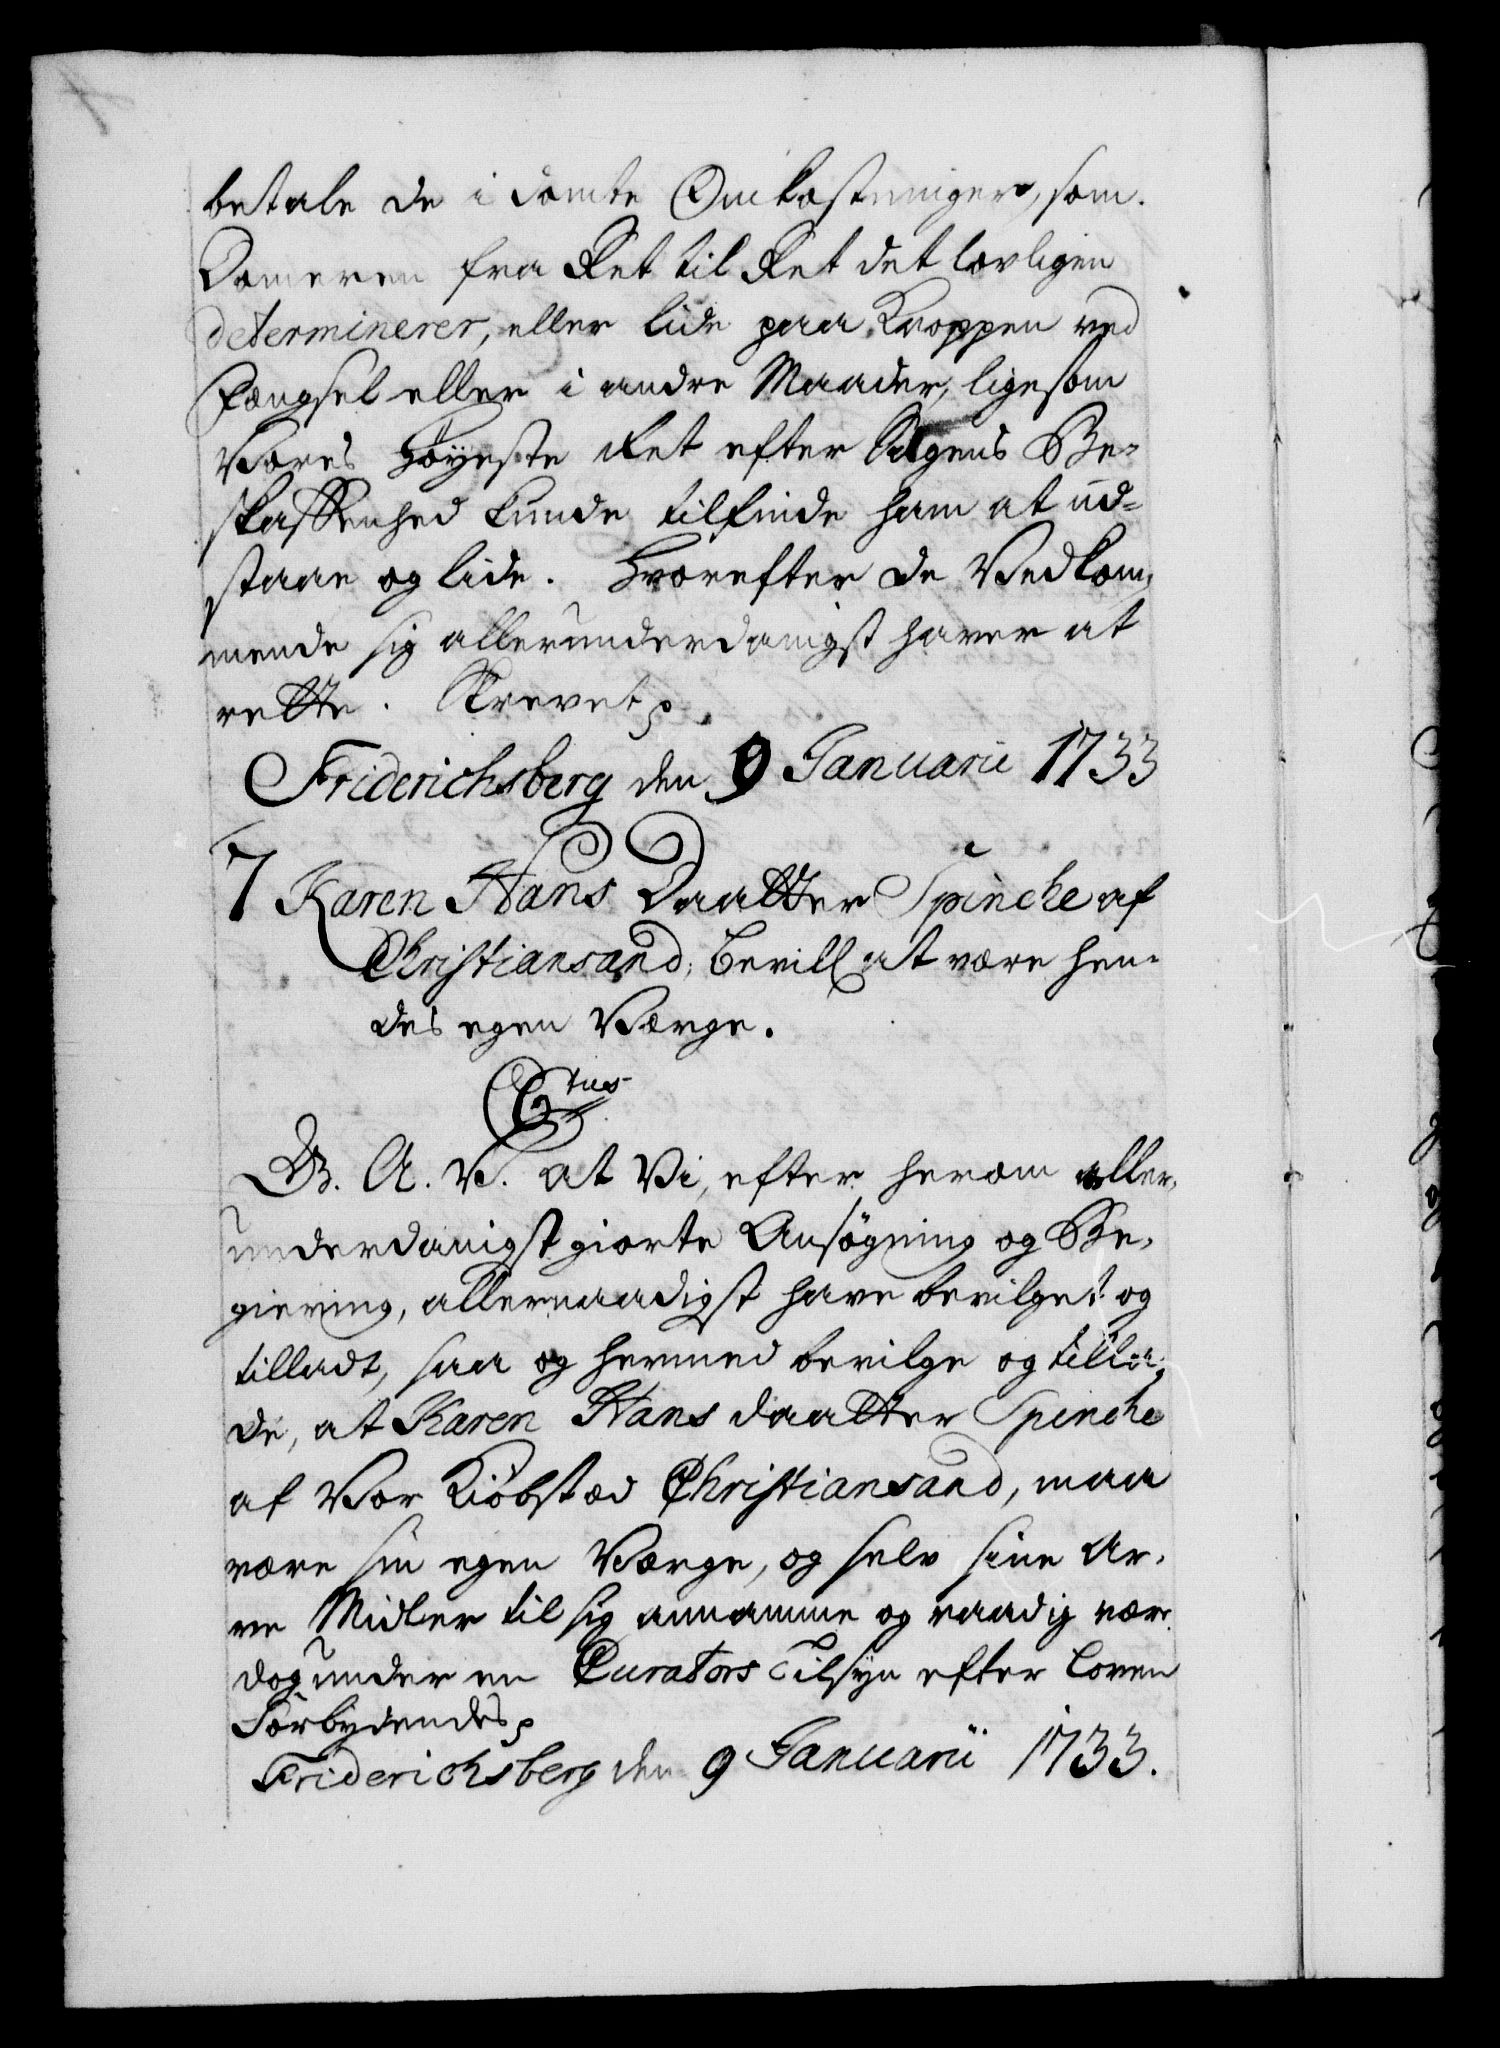 betale de i dömte Omkostninger, som
Domeren fra Ret til Ret det lovligen
determinerer, eller lide paa Kroppen ved
Fængsel eller i andre Maader, ligesom
Vores Höyeste Ret efter Sagens Be-
skaffenhed kunde tilfinde ham at ud-
staae og lide. Hvorefter de Vedkom-
mende sig allerunderdanigst haver at
rette. Skrevet p
Friderichsberg den 9 Januarii 1733
7 Karen Hans Daatter Spinche af
Christiansand, bevill at være hen-
des egen Værge.
C6tus
G. A. V. at Vi, efter herom aller-
underdanigst giorte Ansögning og Be-
giering, allernaadigst have bevilget og
tilladt, saa og hermed bevilge og tilla-
de, at Karen Hans daatter Spinche
af Vor Kiöbstæd Christiansand, maa
være sin egen Værge, og selv sine Ar-
ve Midler til sig annamme og raadig være
dog under en Curators Tilsyn efter Loven
Forbydendes p
Friderichsberg den 9 Januarii 1733.